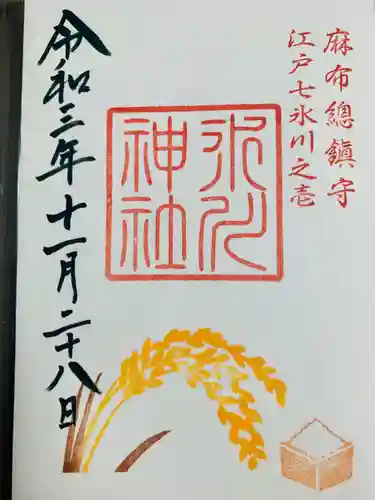 麻布總鎮守
江戸七氷川之壱
氷川
神社
令和三年十一月二十八日